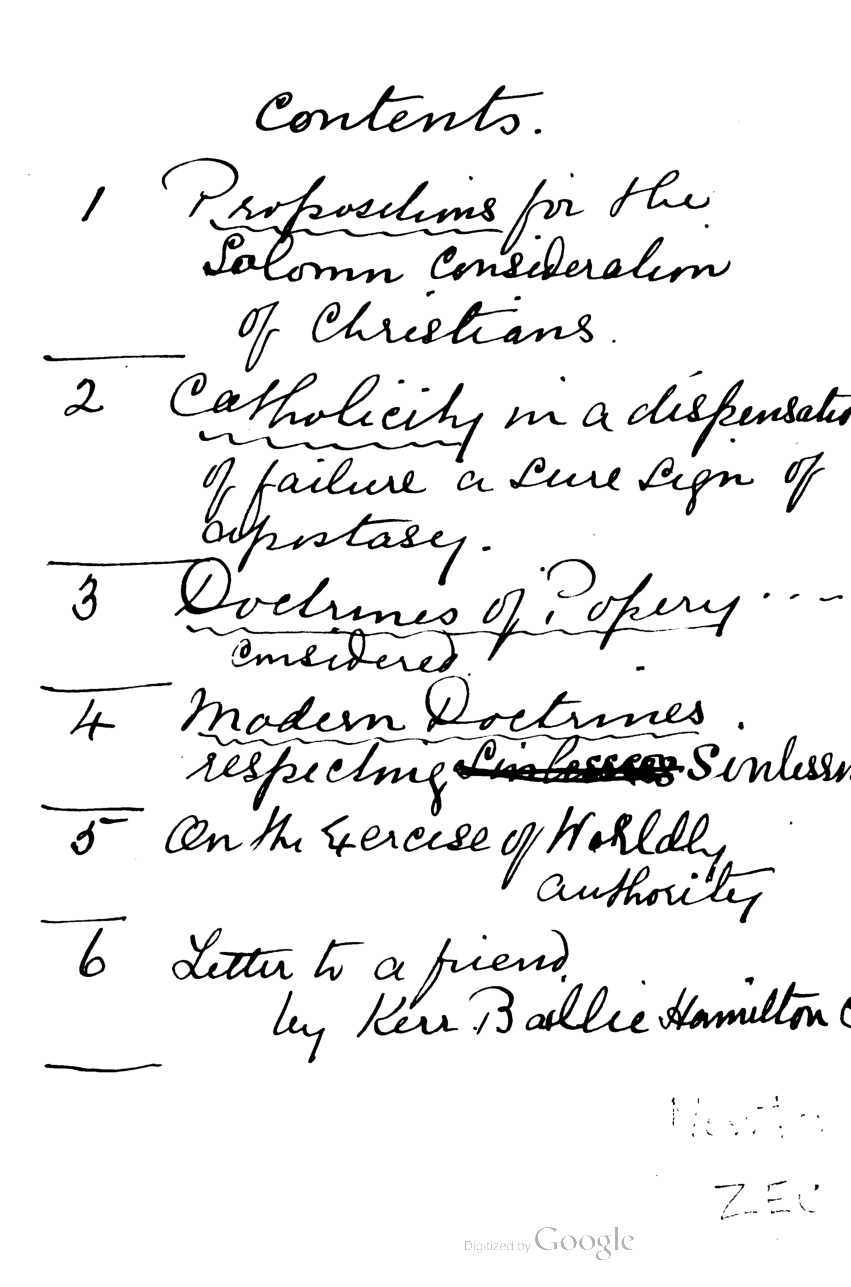 Contents.
1 Propositions for the
Solomn Consideration
of Christians.
2 Catholicity in a dispensatio
of failure a sure sign of
apostasy.
3 Doctrines of Popery ...
considered
4 Modern Doctrines.
respecting Sinlessness Sinlessn
5 On the Exercise of Worldly
authority
6 Letter to a friend
by Kerr Baillie Hamilton C
ZEC
Digitized by Google